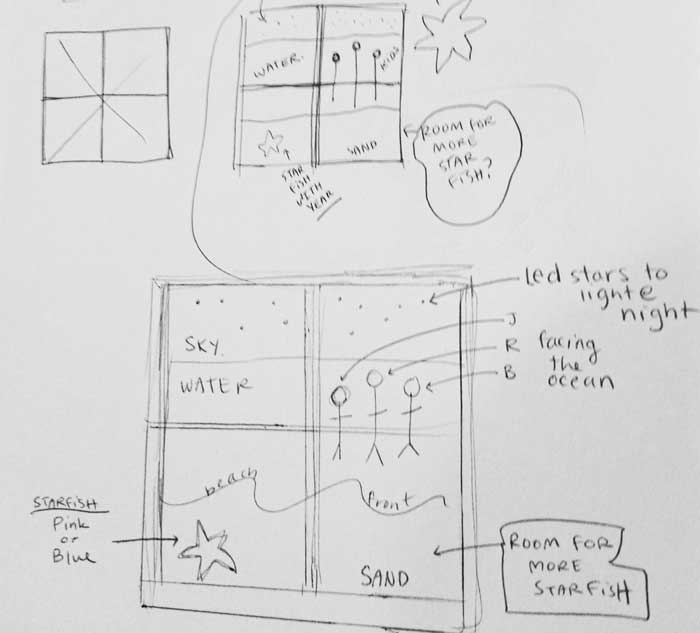 WATER.
KIDS
SAND
STAR
FISH
WITH
YEAR
ROOM FOR
MORE
STAR
FISH?
Led stars to
lighte
night
J
R facing
B the
ocean
SKY.
WATER
beach
front
STARFISH
Pink
or
Blue
SAND
ROOM FOR
MORE
STARFISH